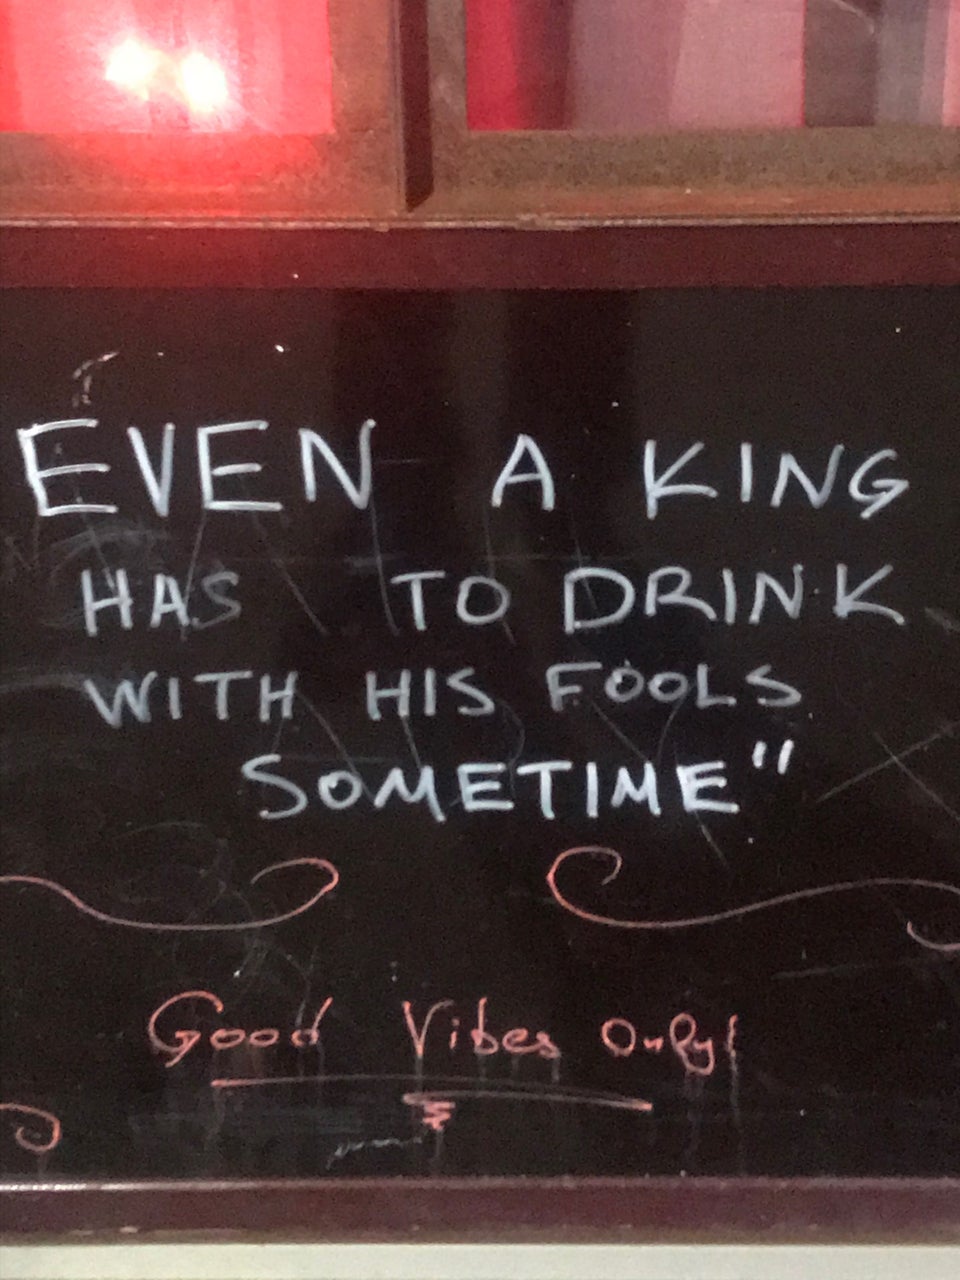 EVEN A KING
HAS TO DRINK
WITH HIS FOOLS
SOMETIME"
Good Vibes Only!